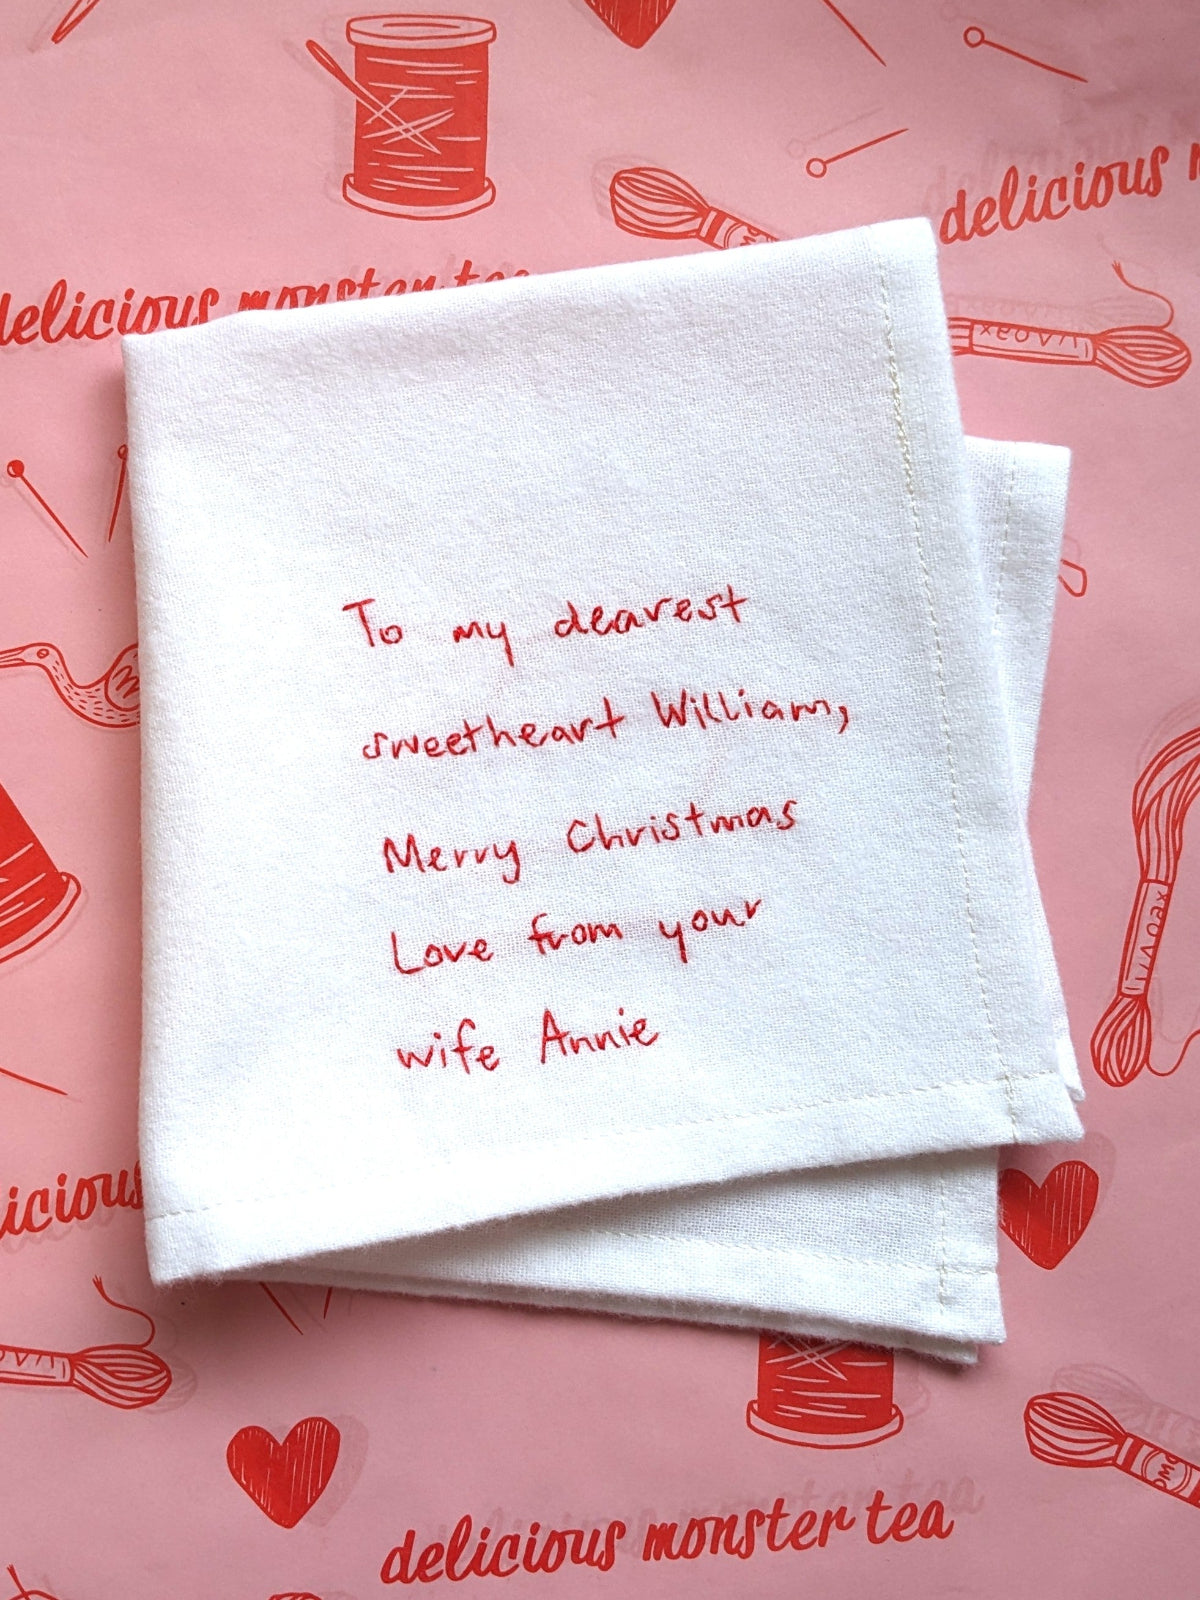 delicious
delicious monster tea
To my dearest
sweetheart William,
Merry Christmas
Love from your
wife Annie
delicious monster tea